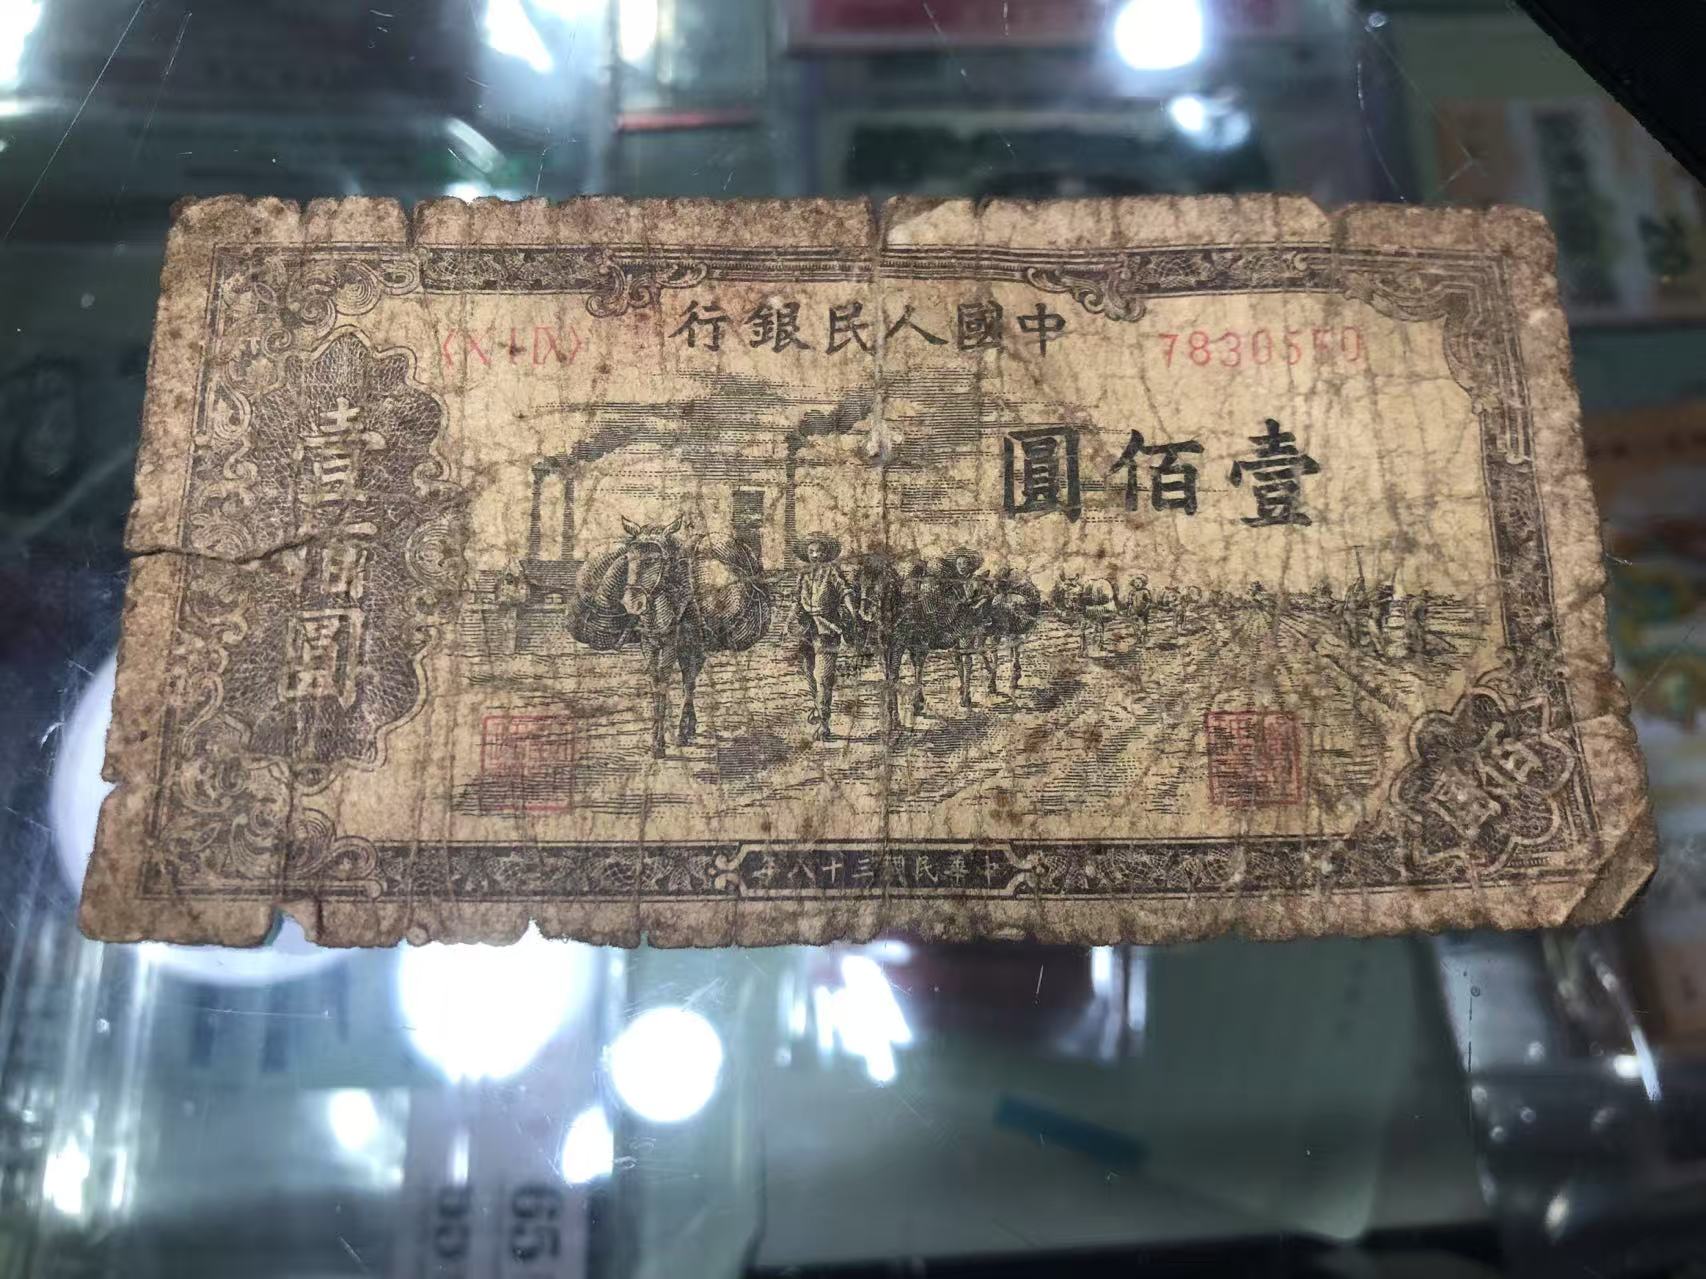 中國人民銀行
壹佰圓
壹佰圓
佰圓
中華民國三十八年
65